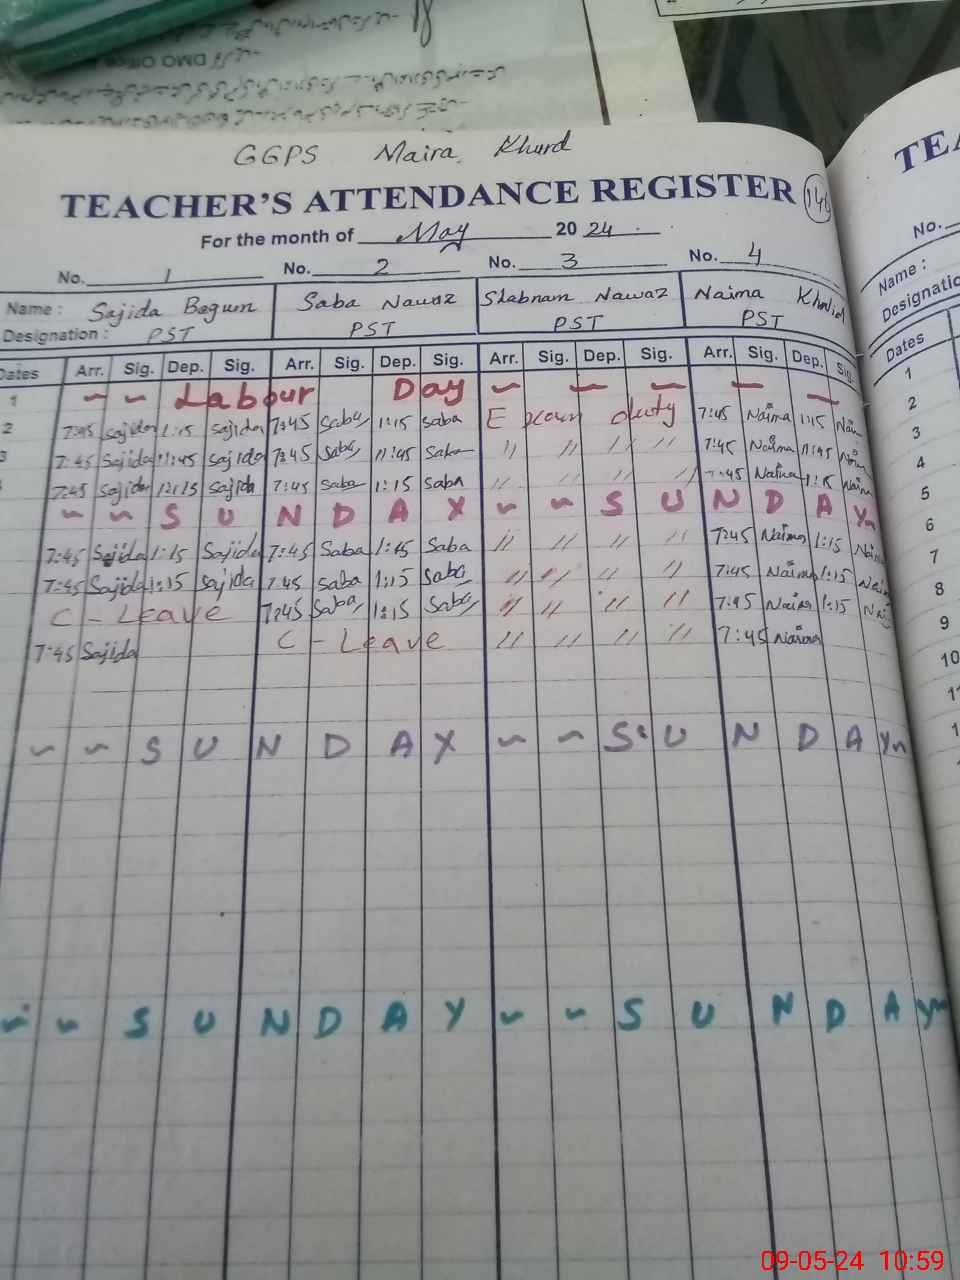 DMO Office
GGPS Maira Khurd
TEACHER'S ATTENDANCE REGISTER 146
For the month of May 2024
No. 1 No. 2 No. 3 No. 4
Name : Sajida Begum Saba Nawaz Shabnam Nawaz Naima Khalid
Designation : PST PST PST PST
Dates Arr. Sig. Dep. Sig. Arr. Sig. Dep. Sig. Arr. Sig. Dep. Sig. Arr. Sig. Dep. Sig.
1 ~ ~ Labour Day ~ — — — —
2 7:45 Sajida 1:15 Sajida 7:45 Saba 1:15 Saba Exam duty 7:45 Naima 1:15 Naim
3 7:45 Sajida 11:45 Sajida 7:45 Saba 11:45 Saba " " " " 7:45 Naima 11:45 Naim
7:45 Sajida 1:15 Sajida 7:45 Saba 1:15 Saba " " " " 7:45 Naima 1:15 Naim
~ ~ S U N D A Y ~ ~ S U N D A Y
7:45 Sajida 1:15 Sajida 7:45 Saba 1:15 Saba " " " " 7:45 Naima 1:15 Nai
7:45 Sajida 1:15 Sajida 7:45 Saba 1:15 Saba " " " " 7:45 Naima 1:15 Nai
C - Leave 7:45 Saba 1:15 Saba " " " " 7:45 Naima 1:15 Nai
7:45 Sajida C - Leave " " " " 7:45 Naima
~ ~ S U N D A Y ~ ~ S U N D A Y
~ ~ S U N D A Y ~ ~ S U N D A Y
TEA
No.
Name :
Designatio
Dates
1
2
3
4
5
6
7
8
9
10
09-05-24 10:59